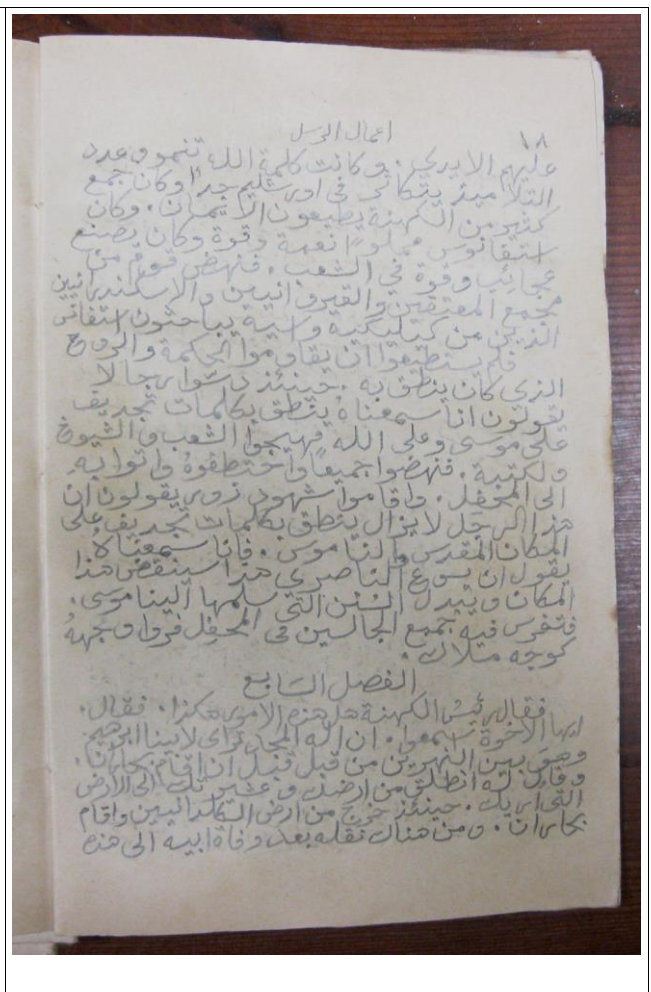 ١٨ اعمال الرسل
عليهم الايدي . وكانت كلمة الله تنمو وعدد
التلاميذ يتكاثر في اورشليم جداً وكان جمع
كثير من الكهنة يطيعون الايمان . وكان
استفانوس مملوءًا نعمة وقوة وكان يصنع
عجائب وقوة في الشعب . فنهض قومٌ من
مجمع المعتقين والقيروانيين والاسكندرانيين
الذين من كيليكية واسية يباحثون استفانس
فلم يستطيعوا ان يقاوموا الحكمة والروح
الذي كان ينطق به . حينئذ دسّوا رجالا
يقولون انا سمعناهُ ينطق بكلمات تجديف
على موسى وعلى الله فهيجوا الشعب والشيوخ
ولكتبة . فنهضوا جميعاً واختطفوهُ واتوا بهِ
الى المحفل . واقاموا شهود زور يقولون ان
هذا الرجل لا يزال ينطق بكلمات تجديف على
المكان المقدس والناموس . فانا سمعناهُ
يقول ان يسوع الناصري هذا سينقض هذا
المكان ويبدل السُنن التي سلمها الينا موسى .
فتفرس فيه جميع الجالسين في المحفل فروا وجههُ
كوجه ملاك .
الفصل السابع
فقال رئيس الكهنة هل هذه الامور هكذا . فقال .
ايها الاخوة اسمعوا . ان اله المجد تراى لابينا ابرهيم
وهو بين النهرين من قبل ان اقام بحاران .
وقال له انطلق من ارضك وعشيرتك الى الارض
التي أريك . حينئذ خرج من ارض الكلدانيين واقام
بحاران . ومن هناك نقله بعد وفاة ابيه الى هذه